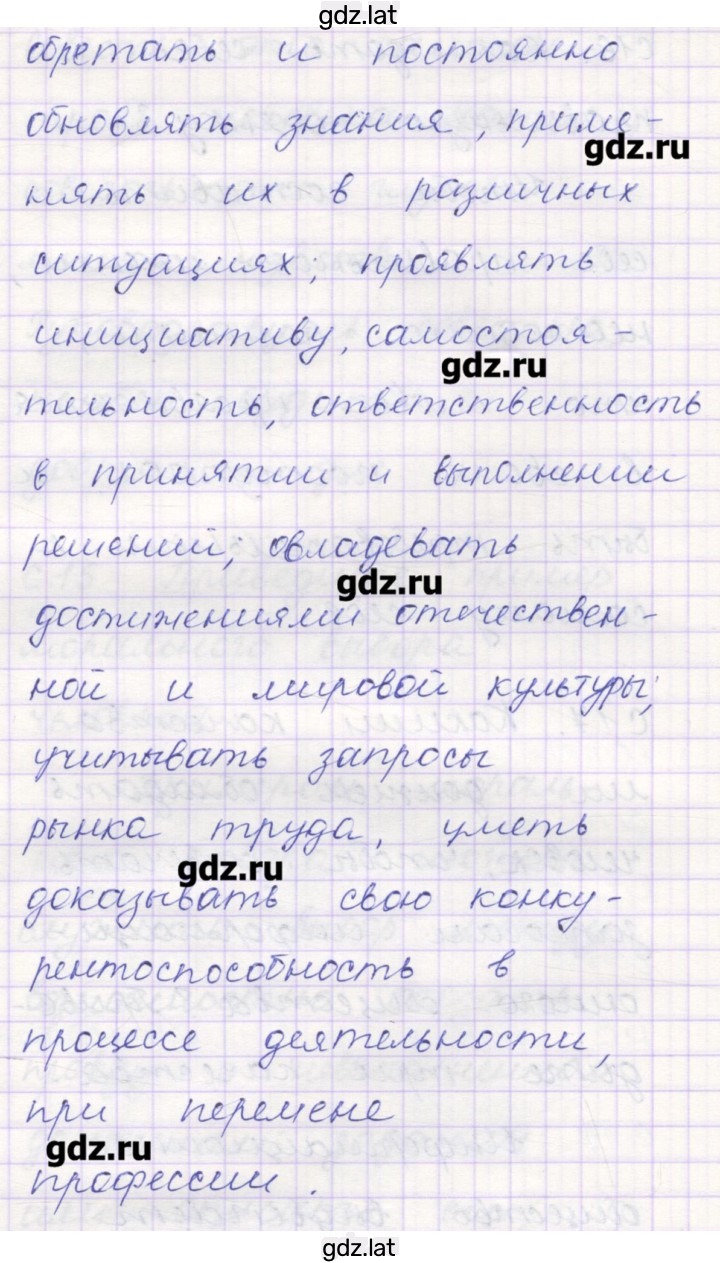 gdz.lat
обретать и постоянно
обновлять знания, приме-
gdz.ru
нять их в различных
ситуациях; проявлять
инициативу, самостоя-
gdz.ru
тельность, ответственность
в принятии и выполнении
решений; овладевать
gdz.ru
достижениями отечествен-
ной и мировой культуры;
учитывать запросы
рынка труда, уметь
gdz.ru
доказывать свою конку-
рентоспособность в
процессе деятельности,
при перемене
gdz.ru
профессии.
gdz.lat